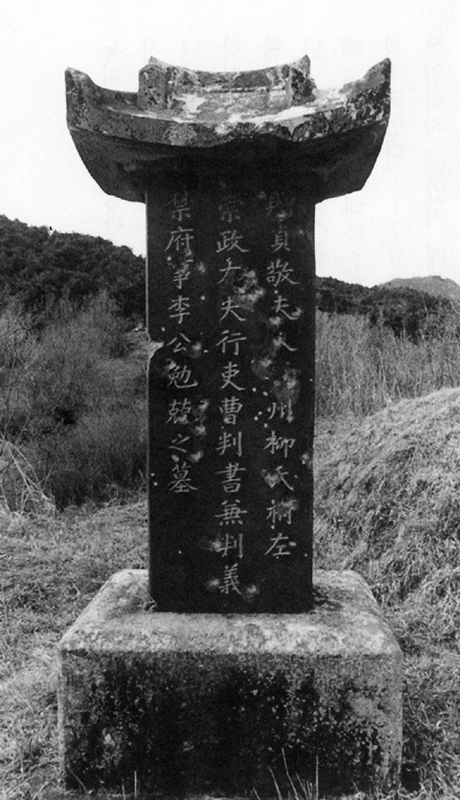 贈貞敬夫人 州柳氏祔左
崇政大夫行吏曹判書兼判義
禁府事李公勉兢之墓